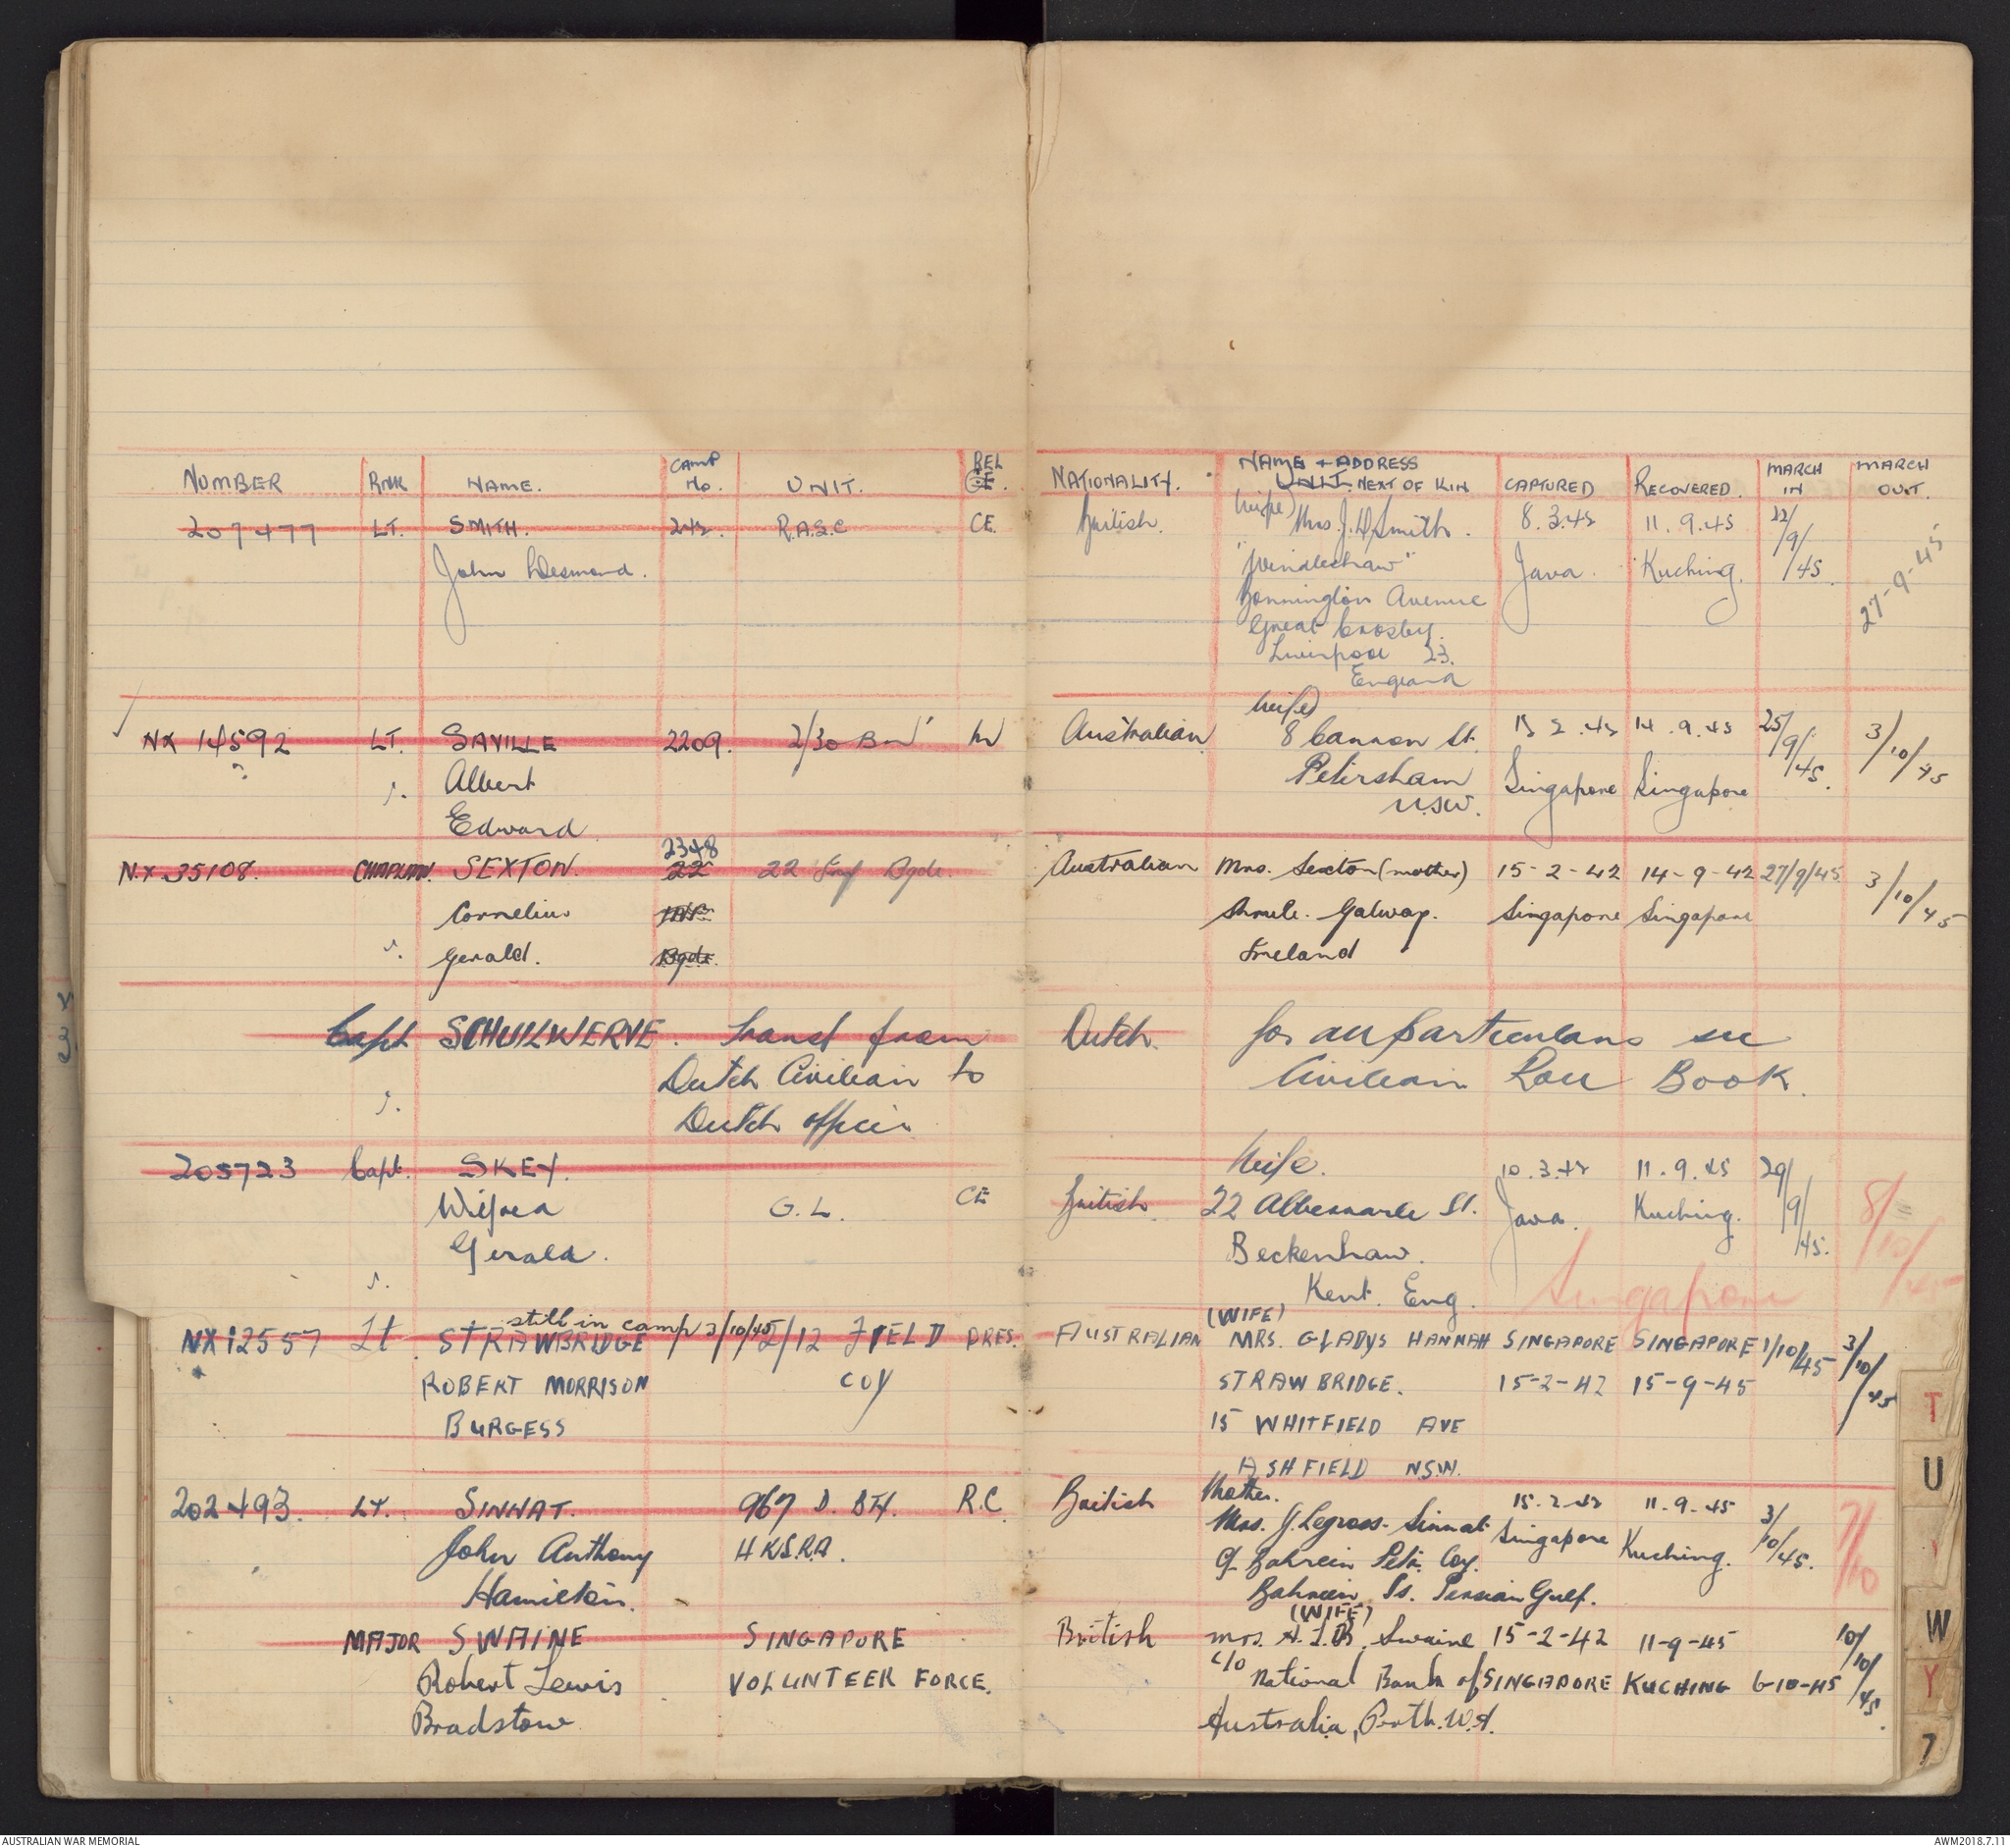 NUMBER RNK NAME. CAMP No. UNIT. REL NATIONALITY. NAME + ADDRESS UNIT. NEXT OF KIN CAPTURED RECOVERED. MARCH IN MARCH OUT.
207477 LT. SMITH. 242. R.A.S.C CE. British. (wife) Mrs. J. D. Smith. 8.3.42 11.9.45 22/9/45 27-9-45
John Desmond. "Windleshaw" Java. Kuching.
Bonnington Avenue
Great Crosby.
Liverpool 23.
England
NX 14592 LT. SAVILLE 2209. 2/30 Bn Australian (wife) 8 Cannon St. 15 2.42 14.9.45 25/9/45. 3/10/45
Albert Petersham Singapore Singapore
Edward N.S.W.
NX 35108. CHAPLAIN. SEXTON. 2348 22 22 Inf Bgde. Australian Mrs. Sexton (mother) 15-2-42 14-9-42 27/9/45 3/10/45
Cornelius Inf Galway. Singapore Singapore
Gerald. Bgde. Ireland
Capt SCHUILWERVE. Transf from Dutch. for all particulars see
Dutch Civilian to Civilian Roll Book.
Dutch officer
205723 Capt. SKEY. Wife. 10.3.42 11.9.45 29/9/45. 8/10/45
Wilfred G.L. CE British. 22 Albemarle St. Java. Kuching.
Gerald. Beckenham.
Kent. Eng. Singapore
still in camp 3/10/45 (WIFE)
NX12557 Lt. STRAWBRIDGE 2/12 FIELD PRES. AUSTRALIAN MRS. GLADYS HANNAH SINGAPORE SINGAPORE 1/10/45 3/10/45
ROBERT MORRISON COY STRAWBRIDGE. 15-2-42 15-9-45
BURGESS 15 WHITFIELD AVE
ASHFIELD N.S.W.
202493. LT. SINNAT. 967 D. BTY. R.C. British Mother. 15.2.42 11.9.45 3/10/45. 7/10
Mrs. J. Legross-Sinnat Singapore Kuching.
John Anthony HKSRA. Bahrein Pet. Coy.
Hamilton. Bahrein Is. Persian Gulf.
MAJOR SWAINE SINGAPORE British (WIFE) Mrs. A.L.B. Swaine 15-2-42 11-9-45 10/10/45.
Robert Lewis VOLUNTEER FORCE. c/o National Bank of SINGAPORE KUCHING 6-10-45
Bradstow Australia, Perth. W.A.
T
U
W
Y
AUSTRALIAN WAR MEMORIAL AWM2018.7.11